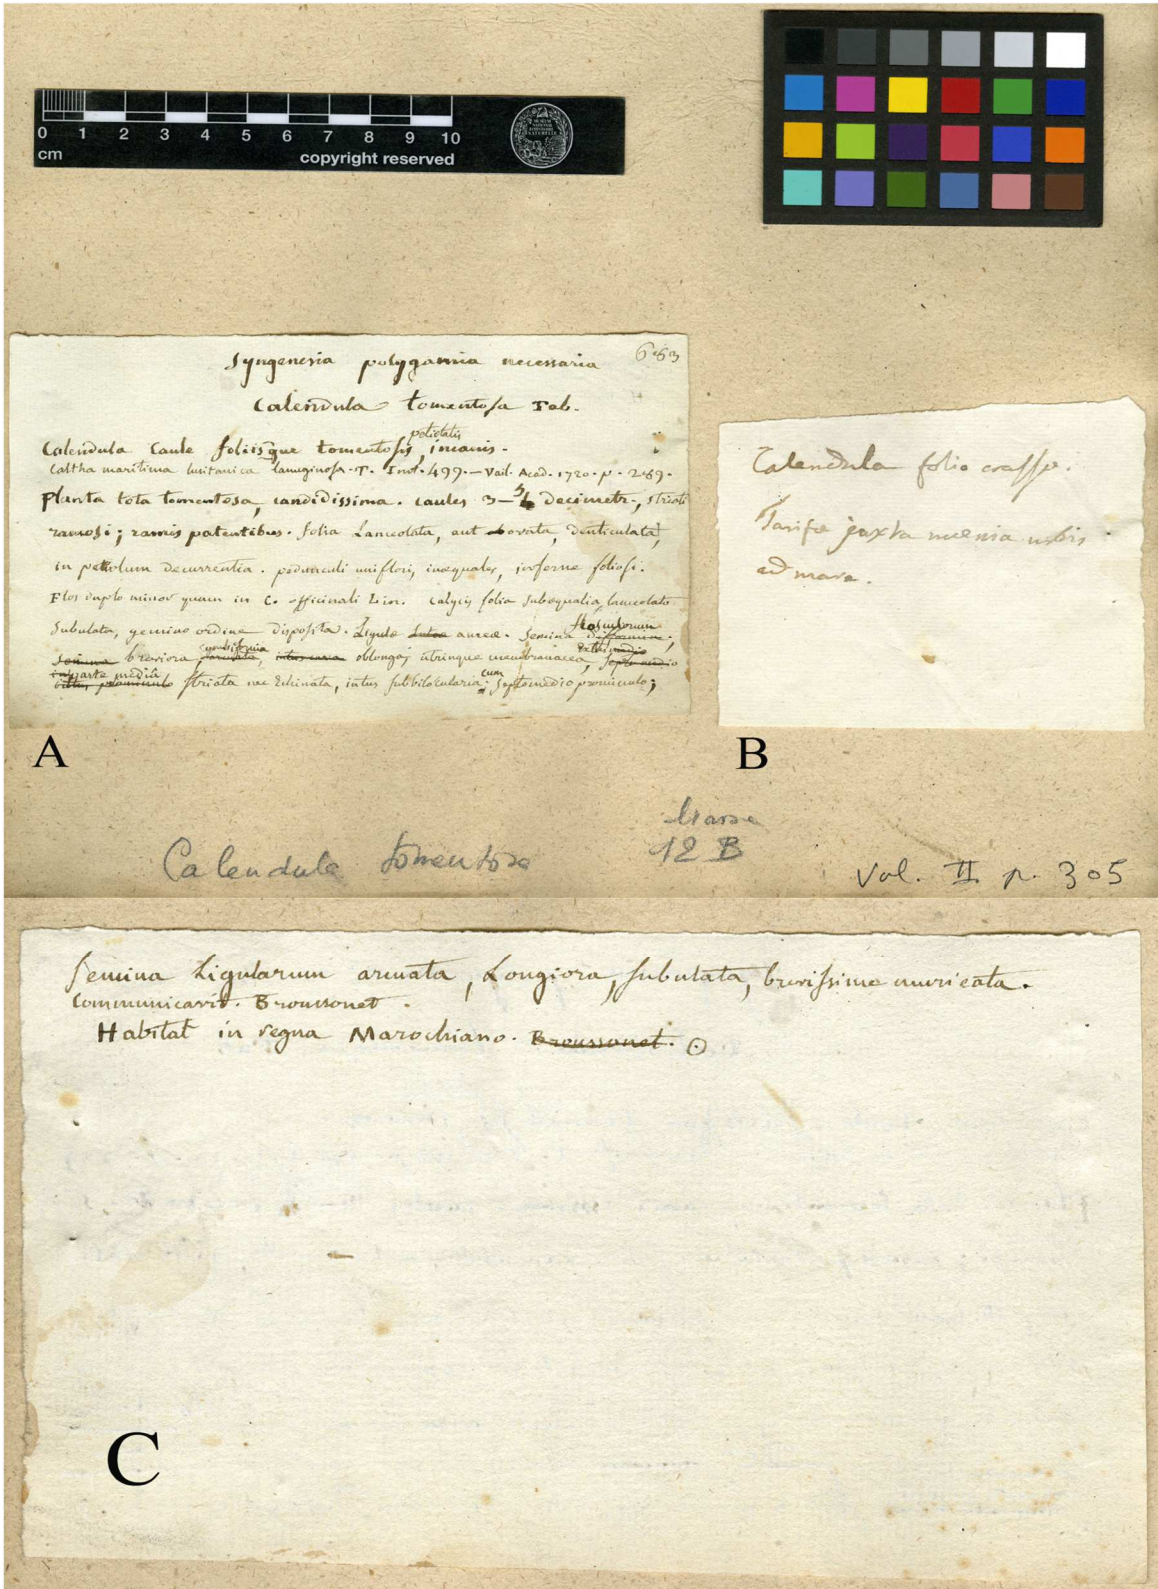 0 1 2 3 4 5 6 7 8 9 10
cm
copyright reserved
683
Syngenesia polygamia necessaria
Calendula tomentosa Tab.
petiolatis
Calendula Caule foliisque tomentosis, incanis.
Caltha maritima lusitanica lanuginosa. T. Inst. 499. — Vail. Acad. 1720. p. 289.
Planta tota tomentosa, candidissima. caules 3— decimetr., striati
ramosi; ramis patentibus. folia Lanceolata, aut ovata, denticulata,
in petiolum decurrentia. pedunculi uniflori, inaequales, inferne foliosi.
Flos duplo minor quam in C. officinali Lin. calycis folia subaequalia, lanceolato
flosculorum
subulata, gemino ordine disposita. Ligulae luteae aureae. Semina difformia;
cymbiformia
semina breviora, intus cava oblonga, utrinque membranacea, septo medio
in parte mediâ
intus prominulo striata nec Echinata, intus subbilocularia cum septo medio prominulo;
A
Calendula folio crasso.
Tarifae juxta moenia urbis
ad mare.
B
Calendula tomentosa
12 B
Vol. II p. 305
Semina Ligularum arcuata, Longiora, subulata, brevissime muricata.
Communicavit. Broussonet.
Habitat in regno Marochiano. Broussonet. ⊙
C